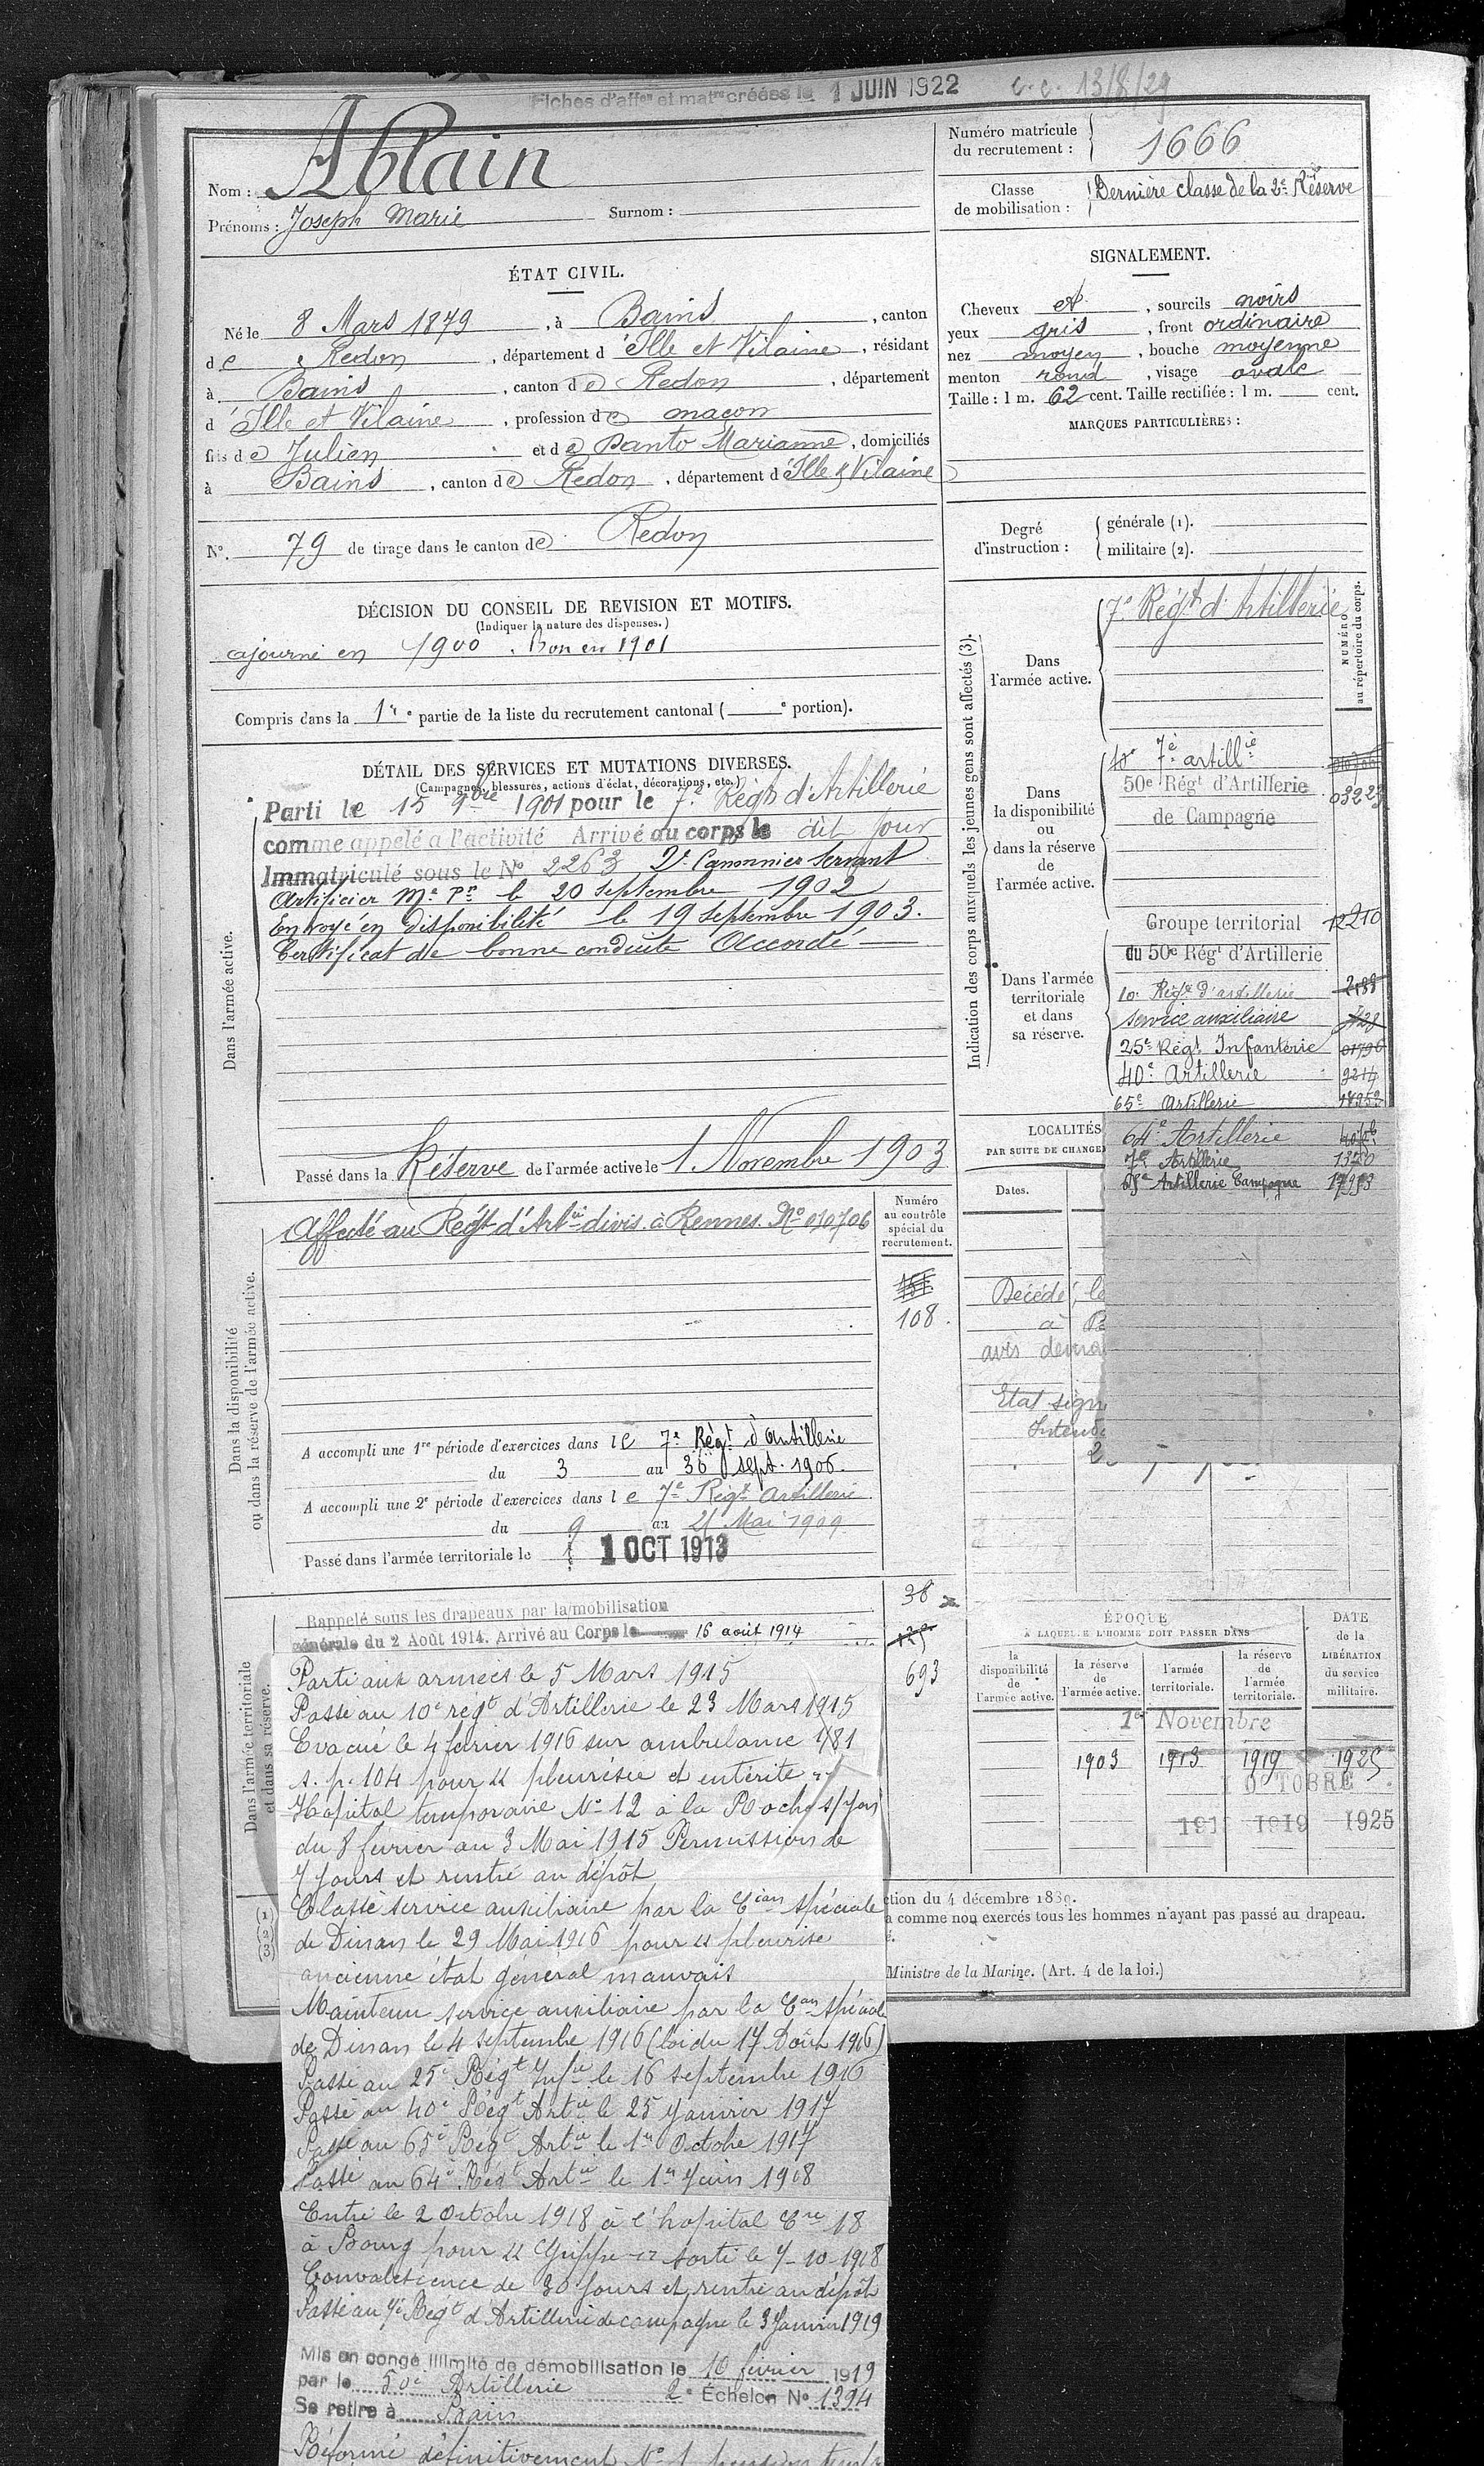 Fiches d'aff^on et mat^re créées le 1 JUIN 1922 c.c. 13/8/29
Nom : Ablain
Prénoms : Joseph Marie Surnom :
Numéro matricule du recrutement : 1666
Classe de mobilisation : Dernière classe de la 2e Réserve
ÉTAT CIVIL.
Né le 8 Mars 1879, à Bains, canton
de Redon, département d'Ille et Vilaine, résidant
à Bains, canton de Redon, département
d'Ille et Vilaine, profession de maçon
fils de Julien et de Panto Marianne, domiciliés
à Bains, canton de Redon, département d'Ille & Vilaine
N°. 79 de tirage dans le canton de Redon
SIGNALEMENT.
Cheveux et, sourcils noirs
yeux gris, front ordinaire
nez moyen, bouche moyenne
menton rond, visage ovale
Taille : 1 m. 62 cent. Taille rectifiée : 1 m. cent.
MARQUES PARTICULIÈRES :
Degré d'instruction : générale (1).
militaire (2).
DÉCISION DU CONSEIL DE REVISION ET MOTIFS.
(Indiquer la nature des dispenses.)
ajourné en 1900. Bon en 1901
Compris dans la 1re partie de la liste du recrutement cantonal ( e portion).
DÉTAIL DES SERVICES ET MUTATIONS DIVERSES.
(Campagnes, blessures, actions d'éclat, décorations, etc.)
Dans l'armée active.
Parti le 15 9bre 1901 pour le 7e Régt d'Artillerie
comme appelé à l'activité Arrivé au corps le dit jour
Immatriculé sous le N° 2263 2e Canonnier Servant
Artificier Me Pr le 20 septembre 1902
Envoyé en disponibilité le 19 septembre 1903.
Certificat de bonne conduite Accordé
Passé dans la Réserve de l'armée active le 1 Novembre 1903
Indication des corps auxquels les jeunes gens sont affectés (3).
NUMÉRO au répertoire du corps.
Dans l'armée active.
7e Régt d'Artillerie
Dans la disponibilité ou dans la réserve de l'armée active.
10e 7e artillie
50e Régt d'Artillerie 03223
de Campagne
Dans l'armée territoriale et dans sa réserve.
Groupe territorial 12210
du 50e Régt d'Artillerie
10e Régt d'artillerie 2188
service auxiliaire
25e Régt Infanterie 01796
40e Artillerie 9214
65e Artillerie 18952
64e Artillerie
7e Artillerie
Artillerie Campagne
LOCALITÉS
PAR SUITE DE CHANGE
Dates.
Décédé, le
à
avis dema
Etat sign
Intend
Dans la disponibilité ou dans la réserve de l'armée active.
Numéro au contrôle spécial du recrutement.
Affecté au Régt d'Artie divis. à Rennes. No 010706
108.
A accompli une 1re période d'exercices dans le 7e Régt d'Artillerie
du 3 au 30 sept. 1906.
A accompli une 2e période d'exercices dans le 7e Régt Artillerie
du 9 au 25 Mai 1909
Passé dans l'armée territoriale le 1 OCT 1913
Dans l'armée territoriale et dans sa réserve.
38
693
Rappelé sous les drapeaux par la mobilisation
générale du 2 Août 1914. Arrivé au Corps le 16 août 1914
Parti aux armées le 5 Mars 1915
Passé au 10e régt d'Artillerie le 23 Mars 1915
Evacué le 4 février 1916 sur ambulance 1/81
s. p. 104 pour " pleurésie et entérite "
Hôpital temporaire No 12 à la Roche s/Yon
du 8 février au 3 Mai 1915 Permission de
7 jours et rentré au dépôt
Classé service auxiliaire par la Cion spéciale
de Dinan le 29 Mai 1916 pour " pleurésie
ancienne état général mauvais
Maintenu service auxiliaire par la Con spéciale
de Dinan le 4 septembre 1916 (loi du 17 Août 1916)
Passé au 25e Régt Infie le 16 septembre 1916
Passé au 40e Régt Artie le 25 janvier 1917
Passé au 65e Régt Artie le 1er Octobre 1917
Passé au 64e Régt Artie le 1er Juin 1918
Entré le 2 Octobre 1918 à l'hopital Cre 18
à Bourg pour " Grippe " sorti le 7-10-1918
Convalescence de 30 jours et rentré au dépôt
Passé au 7e Regt d'Artillerie de campagne le 3 Janvier 1919
Mis en congé illimité de démobilisation le 10 février 1919
par le 50e Artillerie 2e Échelon N° 1394
Se retire à Bain
Réformé définitivement No 1
ÉPOQUE
À LAQUELLE L'HOMME DOIT PASSER DANS
la disponibilité de l'armée active.
la réserve de l'armée active.
l'armée territoriale.
la réserve de l'armée territoriale.
DATE de la LIBÉRATION du service militaire.
1er Novembre
1903 1913 1919 1925
OCTOBRE
191 1919 1925
(1) (2) (3)
ction du 4 décembre 1889.
a comme non exercés tous les hommes n'ayant pas passé au drapeau.
é.
Ministre de la Marine. (Art. 4 de la loi.)